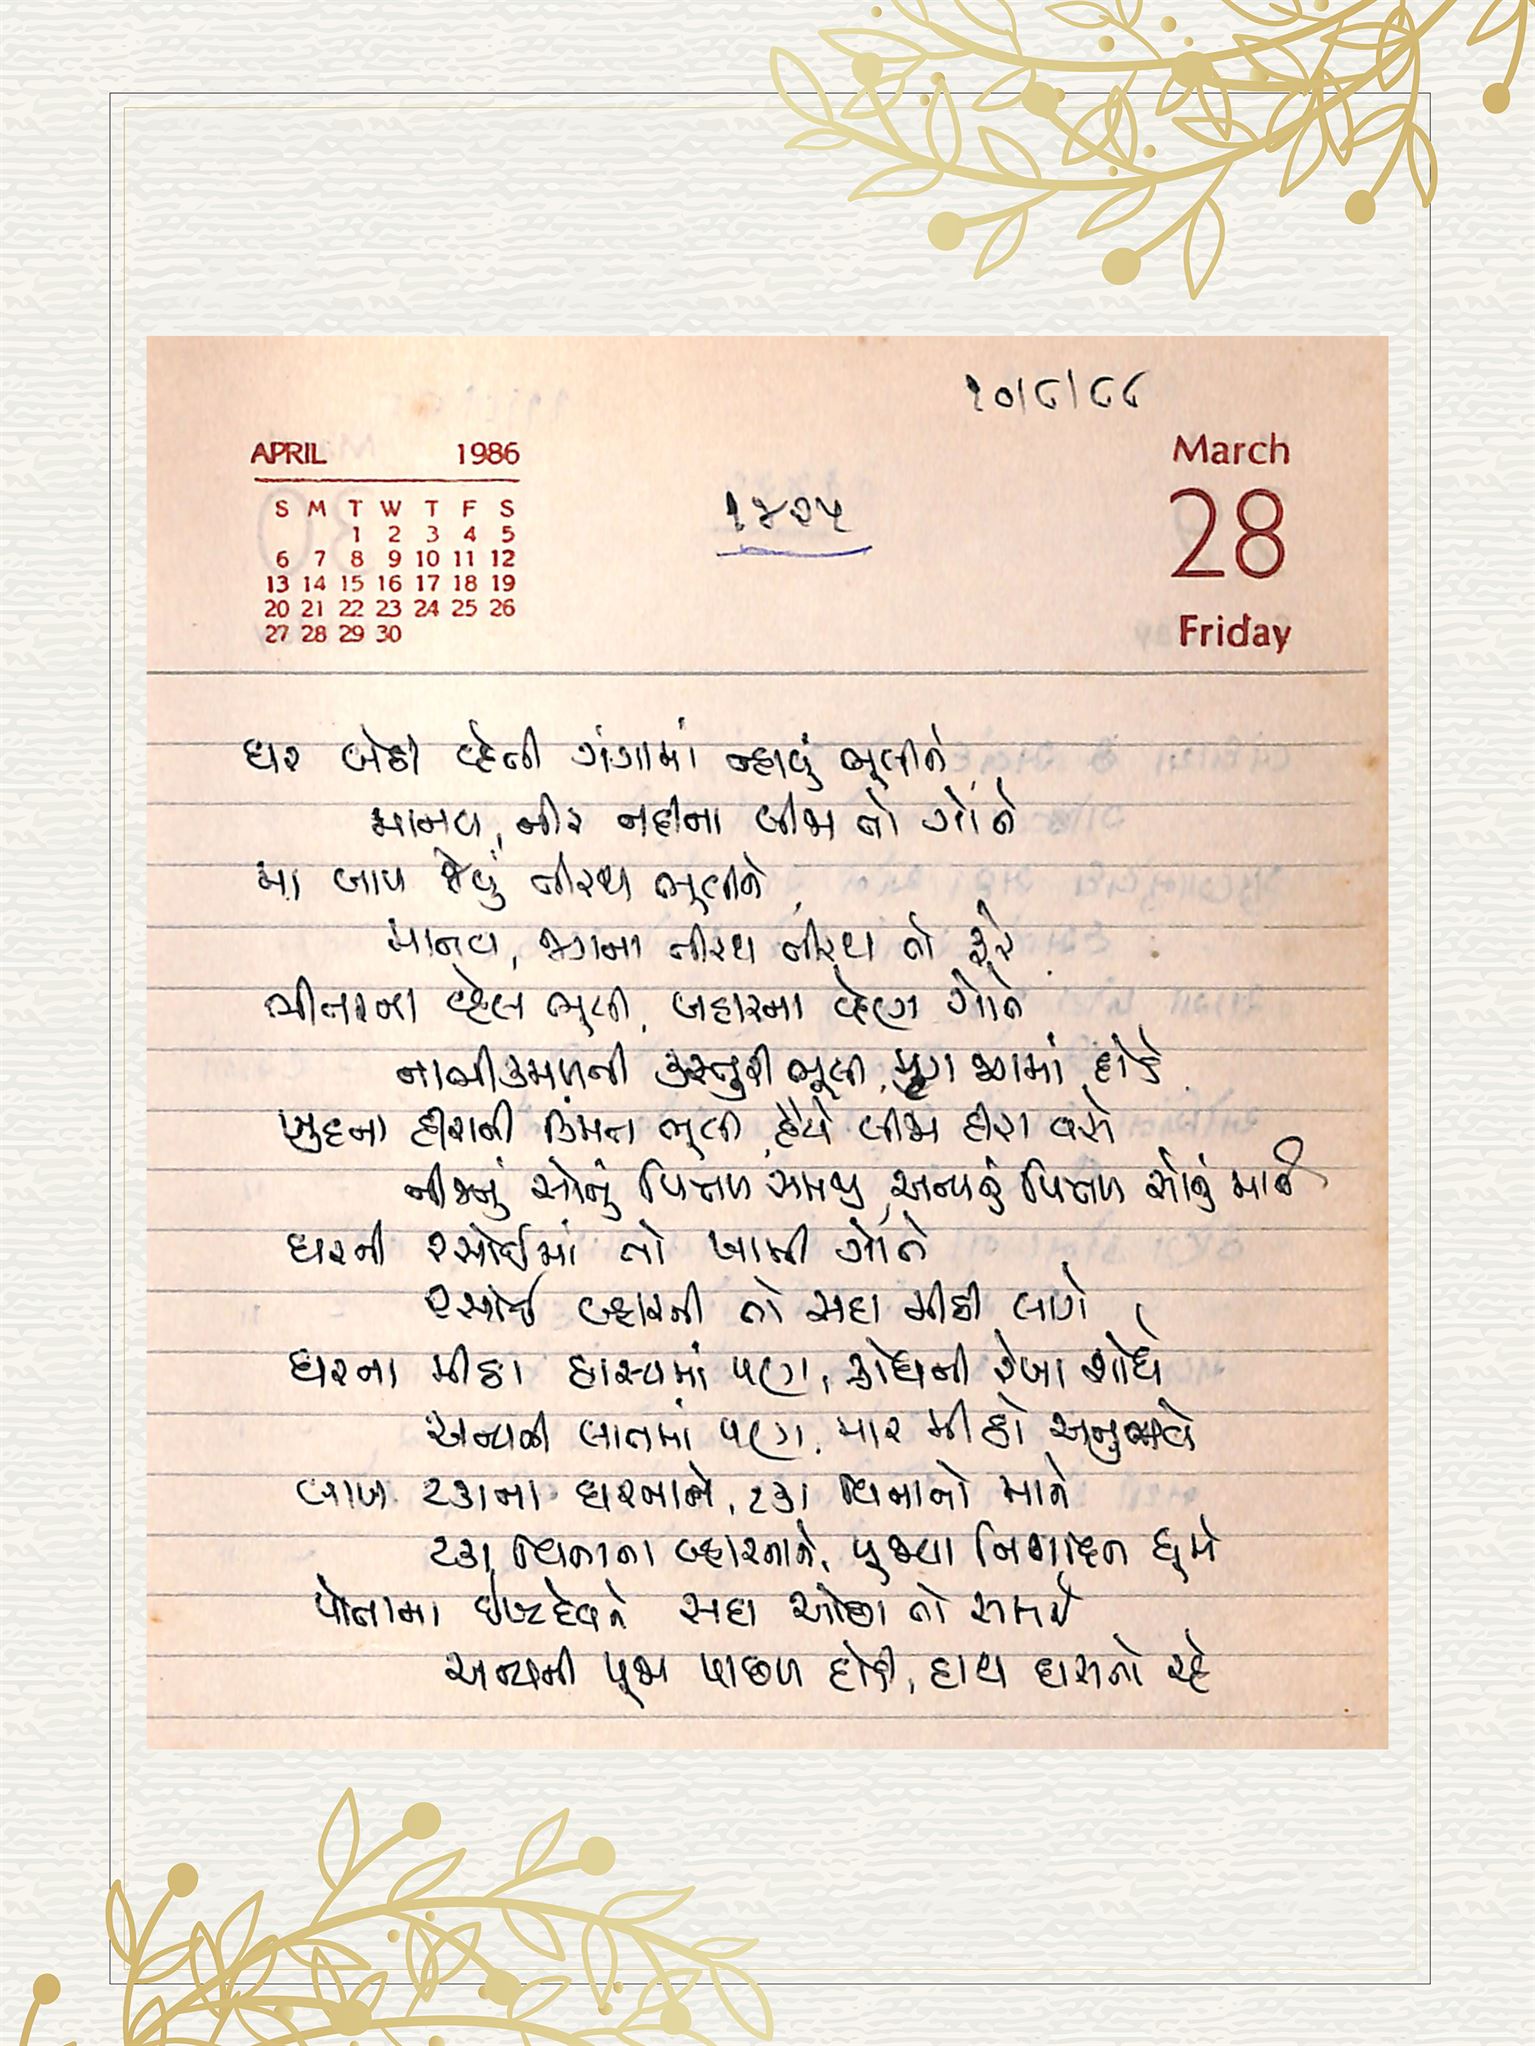 ૧૦/૮/૮૮
APRIL 1986
S M T W T F S
1 2 3 4 5
6 7 8 9 10 11 12
13 14 15 16 17 18 19
20 21 22 23 24 25 26
27 28 29 30
૧૪૨૫
March
28
Friday
ઘર બેઠી વ્હેતી ગંગામાં ન્હાવું ભૂલીને
માનવ, નીર નદીના બીજા તો ગોતે
મા બાપ જેવું તીરથ ભૂલીને
માનવ, જગના તીરથ તીરથ તો ફરે
ભીતરના વ્હેણ ભુલી, બહારના વ્હેણ ગોતે
નાભીકમળની કસ્તુરી ભૂલી, મૃગ જગમાં દોડે
ખુદના હીરાની કિંમત ભૂલી, હૈયે બીજા હીરા વસે
નીજનું સોનું પિત્તળ સમજી, અન્યનું પિત્તળ સોનું માને
ઘરની રસોઈમાં તો ખામી ગોતે
રસોઈ બ્હારની તો સદા મીઠી લાગે
ઘરના મીઠા હાસ્યમાં પણ, ક્રોધની રેખા શોધે
અન્યની લાતમાં પણ, માર મીઠો અનુભવે
લાખ ટકાના ઘરનાને, ટકા વિનાનો માને
ટકા વિનાના બ્હારનાને, પૂજવા નિશદિન ઘૂમે
પોતાના ઈષ્ટદેવને સદા ઓછા તો સમજે
અન્યની પૂજા પાછળ દોડી, હાથ ઘસતો રહે